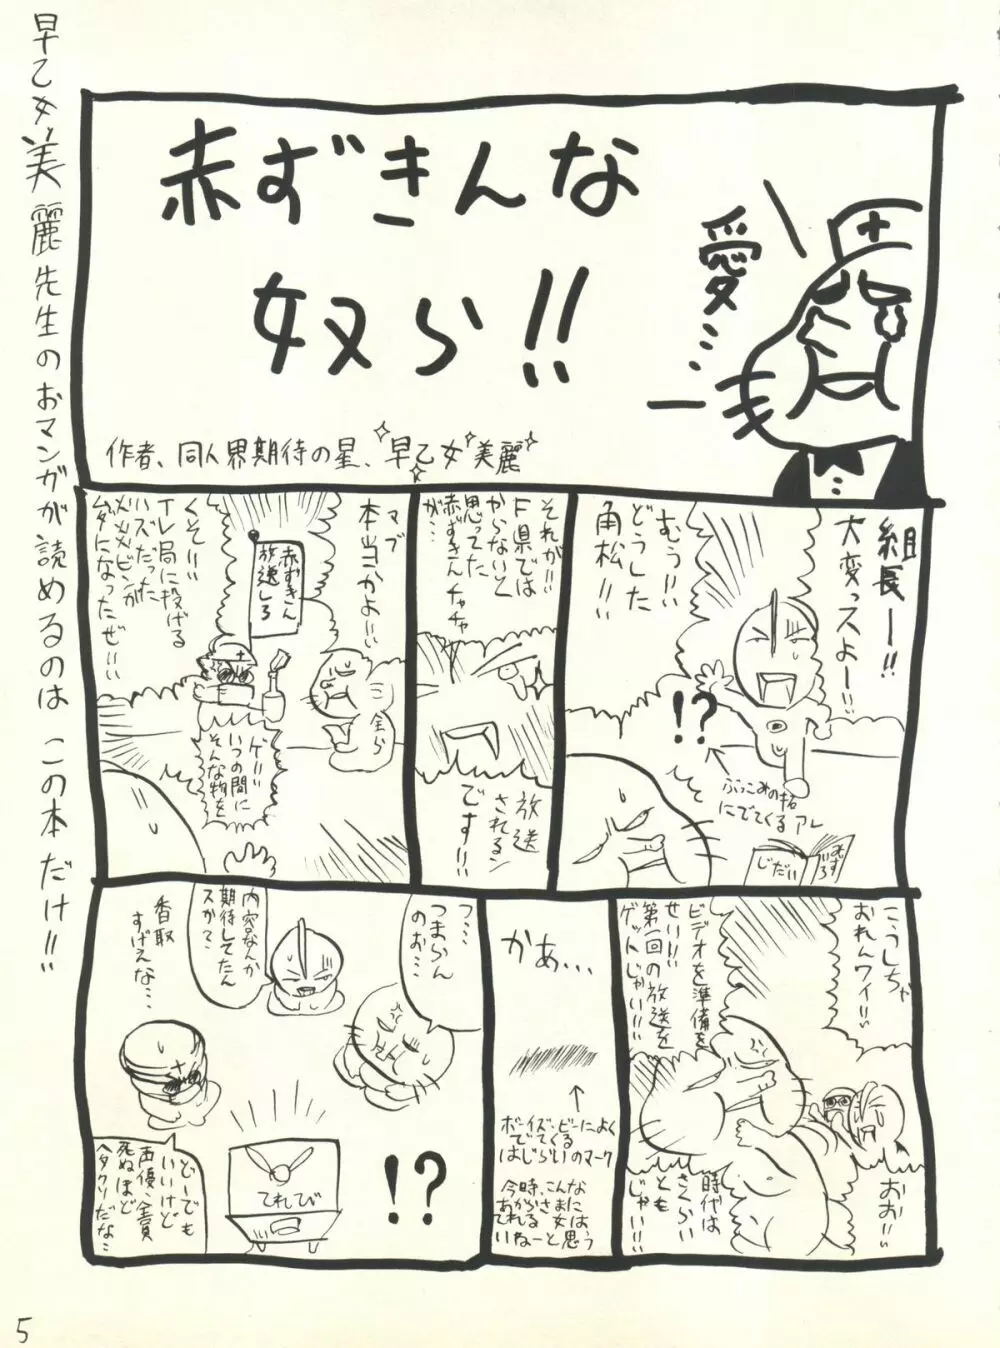 早乙女美麗先生のおマンガが読めるのは この本だけ!!
赤ずきんな
奴ら!!
愛…
作者、同人界期待の星、早乙女美麗
組長ー!!
大変っスよー!!
むぅ!!
どうした
角松!!
!?
ぶっこみの拓
にでてくるアレ
じだい
それが!!
F県では
やらないと
思ってた
赤ずきんチャチャ
が…
放送
されるン
です!!
マブ
本当かよ!!
赤ずきん
放送しろ
くそ!!
T レ局に投げる
ハズだった
火火火ビンが
ムダになったぜ!!
ゲ!!
いつの間に
そんな物を
こうしちゃ
おれんワイ!!
ビデオを準備を
せい!!
第一回の放送を
ゲットじゃい!!
おお!!
時代は
さくらい
とも
じゃい!!
かあ…
ボーイズ・ビーによく
でてくる
はじらいのマーク
今時、こんな
あからさまに
てれる女は
いねーと思う
つ…
つまらん
のお…
内容なんか
期待してたん
スか?…
香取
すげえな…
てれてび
!?
どーでも
いいけど
声優、全員
死ぬほど
ヘタクソだな…
5